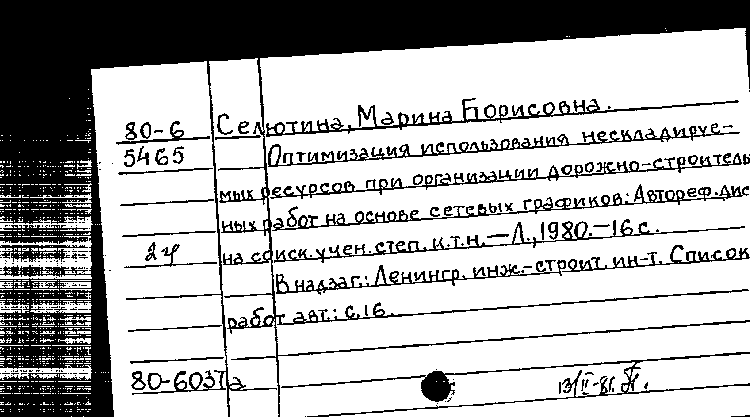 80-6 Селютина, Марина Борисовна.
5465 Оптимизация использования нескладируе-
мых ресурсов при организации дорожно-строитель
ных работ на основе сетевых графиков: Автореф. дис
2ч на соиск. учен. степ. к.т.н. — Л., 1980. — 16 с.
В надзаг.: Ленингр. инж.-строит. ин-т. Список
работ авт.: с. 16.
80-6037а
13/II-81.